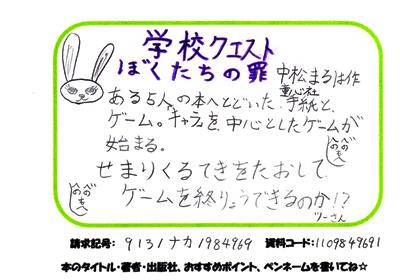 学校クエスト
ぼくたちの罪
中松まるは作
童心社
ある5人の本へとどいた、手紙と、
ゲーム。キャラを、中心としたゲームが
始まる。
せまりくるてきをたおして、
ゲームを終りょうできるのか!?
つーさん
へのへのもへ
へのへのもへ
請求記号: 913/ナカ/984969 資料コード:1109849691
本のタイトル・著者・出版社、おすすめポイント、ペンネームを書いてね☆